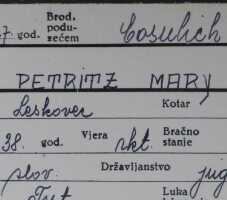 7. god. Brod. podu- zećem Cosulich
PETRITZ MARY
Leskovec Kotar
38. god. Vjera rkt. Bračno stanje
slov. Državljanstvo jug
Luka